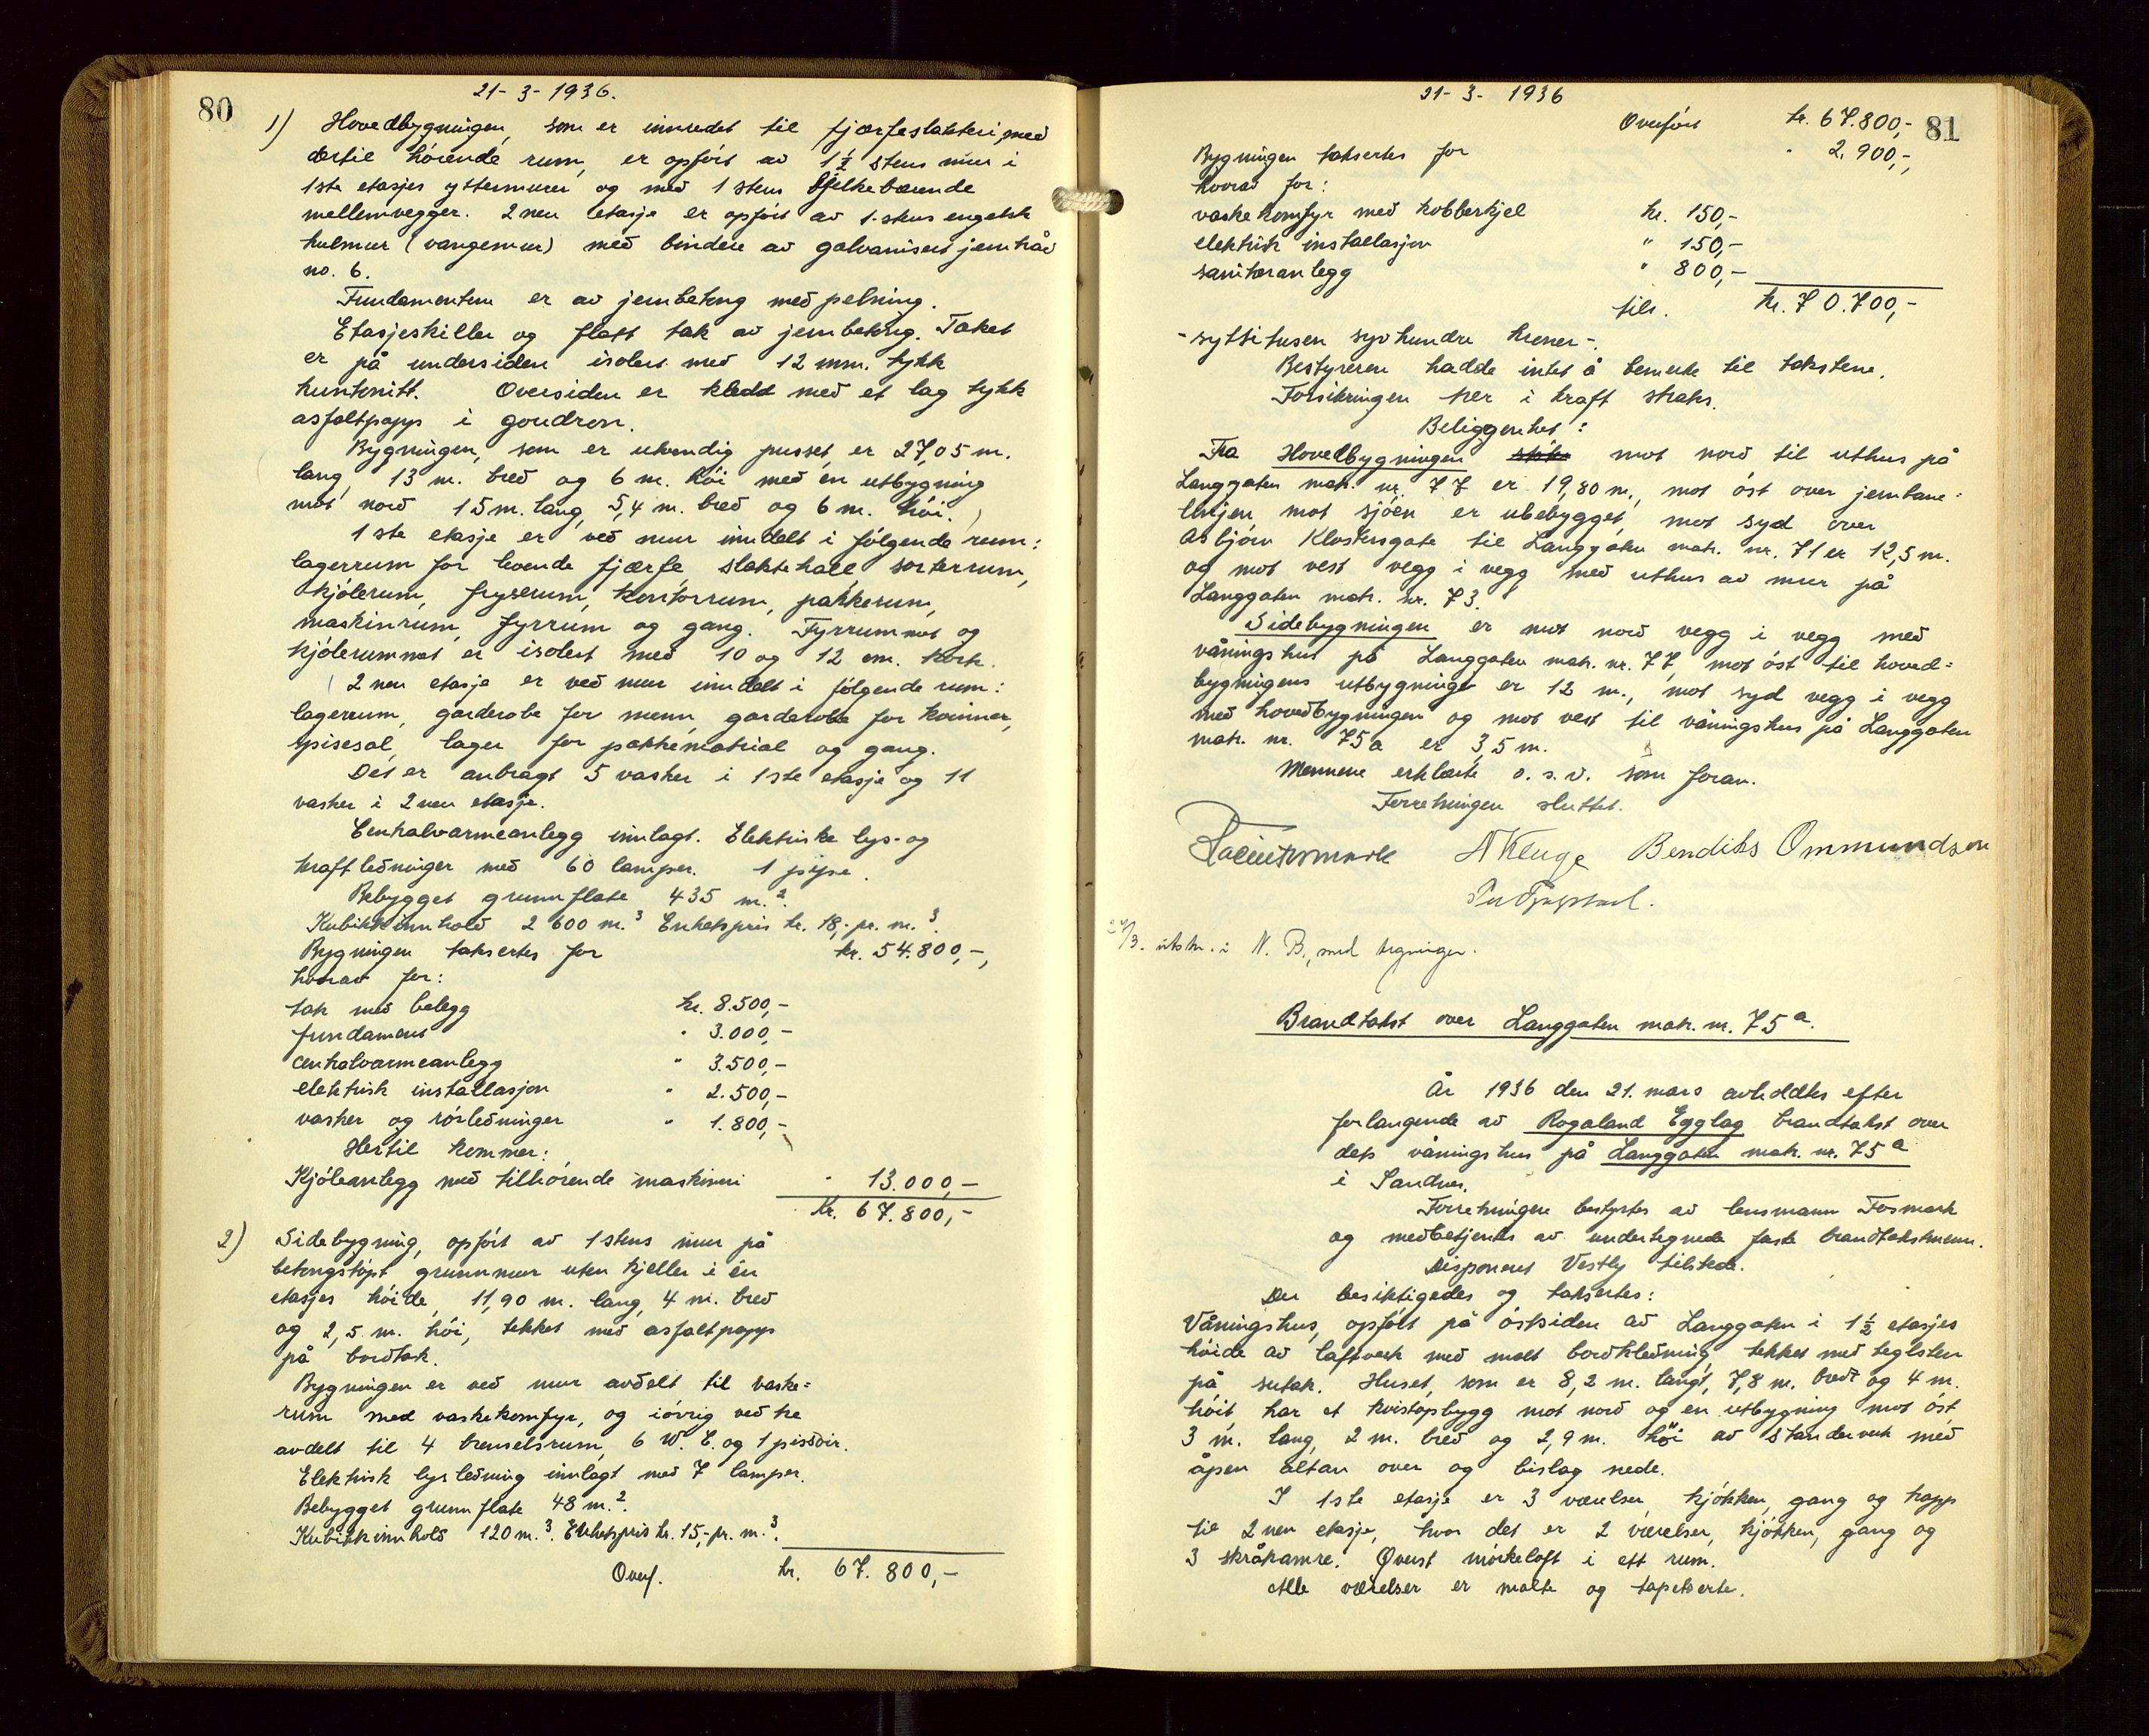 80
21-3-1936.
1) Hovedbygningen, som er innredet til fjærfeslakteri, med
dertil hørende rum, er opført av 1½ stens mur i
1ste etasjes yttermurer og med 1 stens bjelkebærende
mellemvegger. 2nen etasje er opført av 1.stens engelsk
hulmur (vangemur) med bindere av galvanisert jerntråd
no. 6.
Fundamentene er av jernbetong med peling.
Etasjeskiller og flatt tak av jernbetong. Taket
er på undersiden isolert med 12 mm. tykk
huntonitt. Oversiden er kledd med et lag tykk
asfaltpapp i goudron.
Bygningen, som er utvendig pusset, er 27,05 m.
lang, 13 m. bred og 6 m. høi med en utbygning
mot nord 15 m. lang, 5,4 m. bred og 6 m. høi.
1ste etasje er ved mur inndelt i følgende rum:
lagerrum for levende fjærfe, slaktehall, sorterrum,
kjølerum, fryserum, kontorrum, pakkerum,
maskinrum, fyrrum og gang. Fyrrummet og
kjølerummet er isolert med 10 og 12 cm. kork.
2nen etasje er ved mur inndelt i følgende rum:
lagerrum, garderobe for menn, garderobe for kvinner,
spisesal, lager for pakkematrial og gang.
Det er anbragt 5 vasker i 1ste etasje og 11
vasker i 2nen etasje.
Centralvarmeanlegg innlagt. Elektriske lys- og
kraftledninger med 60 lamper. 1 pipe.
Bebygget grunnflate 435 m.².
Kubikkinnhold 2 600 m.³ Enhetspris kr. 18,- pr. m.³.
Bygningen takseres for kr. 54.800,-,
hvorav for:
tak med belegg kr. 8.500,-
fundament " 3.000,-
centralvarmeanlegg " 3.500,-
elektrisk installasjon " 2.500,-
vasker og rørledninger " 1.800,-
Hertil kommer:
Kjøleanlegg med tilhørende maskineri " 13.000,-
Kr. 67.800,-
2) Sidebygning, opført av 1stens mur på
betongstøpt grunnmur uten kjeller i én
etasjes høide, 11,90 m. lang, 4 m. bred
og 2,5 m. høi, tekket med asfaltpapp
på bordtak.
Bygningen er ved mur avdelt til vaske-
rum med vaskekomfyr, og iøvrig ved tre
avdelt til 4 brenselsrum, 6 W. C. og 1 pissoir.
Elektrisk lysledning innlagt med 7 lamper.
Bebygget grunnflate 48 m.².
Kubikkinnhold 120 m.³. Enhetspris kr. 15,- pr. m.³.
Overf. kr. 67.800,-
21-3-1936
81
Overført kr. 67.800,-
Bygningen taksertes for " 2.900,-,
hvorav for:
vaskekomfyr med kobberkjel kr. 150,-
elektrisk installasjon " 150,-
sanitæranlegg " 800,-
tils. kr. 70.700,-
- syttitusen syvhundre kroner -.
Bestyreren hadde intet å bemerke til takstene.
Forsikringen trer i kraft straks.
Beliggenhet:
Fra Hovedbygningen mot nord til uthus på
Langgaten matr. nr. 77 er 19,80 m., mot øst over jernbane-
linjen mot sjøen er ubebygget, mot syd over
Asbjørn Klostersgate til Langgaten matr. nr. 71 er 12,5 m.
og mot vest vegg i vegg med uthus av mur på
Langgaten matr. nr. 73.
Sidebygningen er mot nord vegg i vegg med
våningshus på Langgaten matr. nr. 77, mot øst til hoved-
bygningens utbygninge er 12 m., mot syd vegg i vegg
med hovedbygningen og mot vest til våningshus på Langgaten
matr. nr. 75a er 3,5 m.
Mennene erklærte o. s. v. som foran.
Forretningen sluttet.
N Kluge Bendiks Ommundsen
24/3. utskr. i N. B., med tegninger.
Brandtakst over Langgaten matr. nr. 75 a.
År 1936 den 21. mars avholdtes efter
forlangende av Rogaland Egglag brandtakst over
dets våningshus på Langgaten matr. nr. 75 a
i Sandnes.
Forretningen bestyrtes av lensmann Tosmark
og medbetjentes av undertegnede faste brandtakstmenn.
Disponent Vestly tilstede.
Der besiktigedes og taksertes:
Våningshus, opført på østsiden av Langgaten i 1½ etasjes
høide av laftverk med malt bordkledning, tekket med teglsten
på sutak. Huset, som er 8,2 m. langt, 7,8 m. bredt og 4 m.
høit, har et kvistopbygg mot nord og en utbygning mot øst,
3 m. lang, 2 m. bred og 2,9 m. høi av standerverk med
åpen altan over og bislag nede.
I 1ste etasje er 3 værelser, kjøkken, gang og trapp
til 2nen etasje, hvor det er 2 værelser, kjøkken, gang og
3 skråkamre. Øverst mørkeloft i ett rum.
Alle værelser er malte og tapetserte.